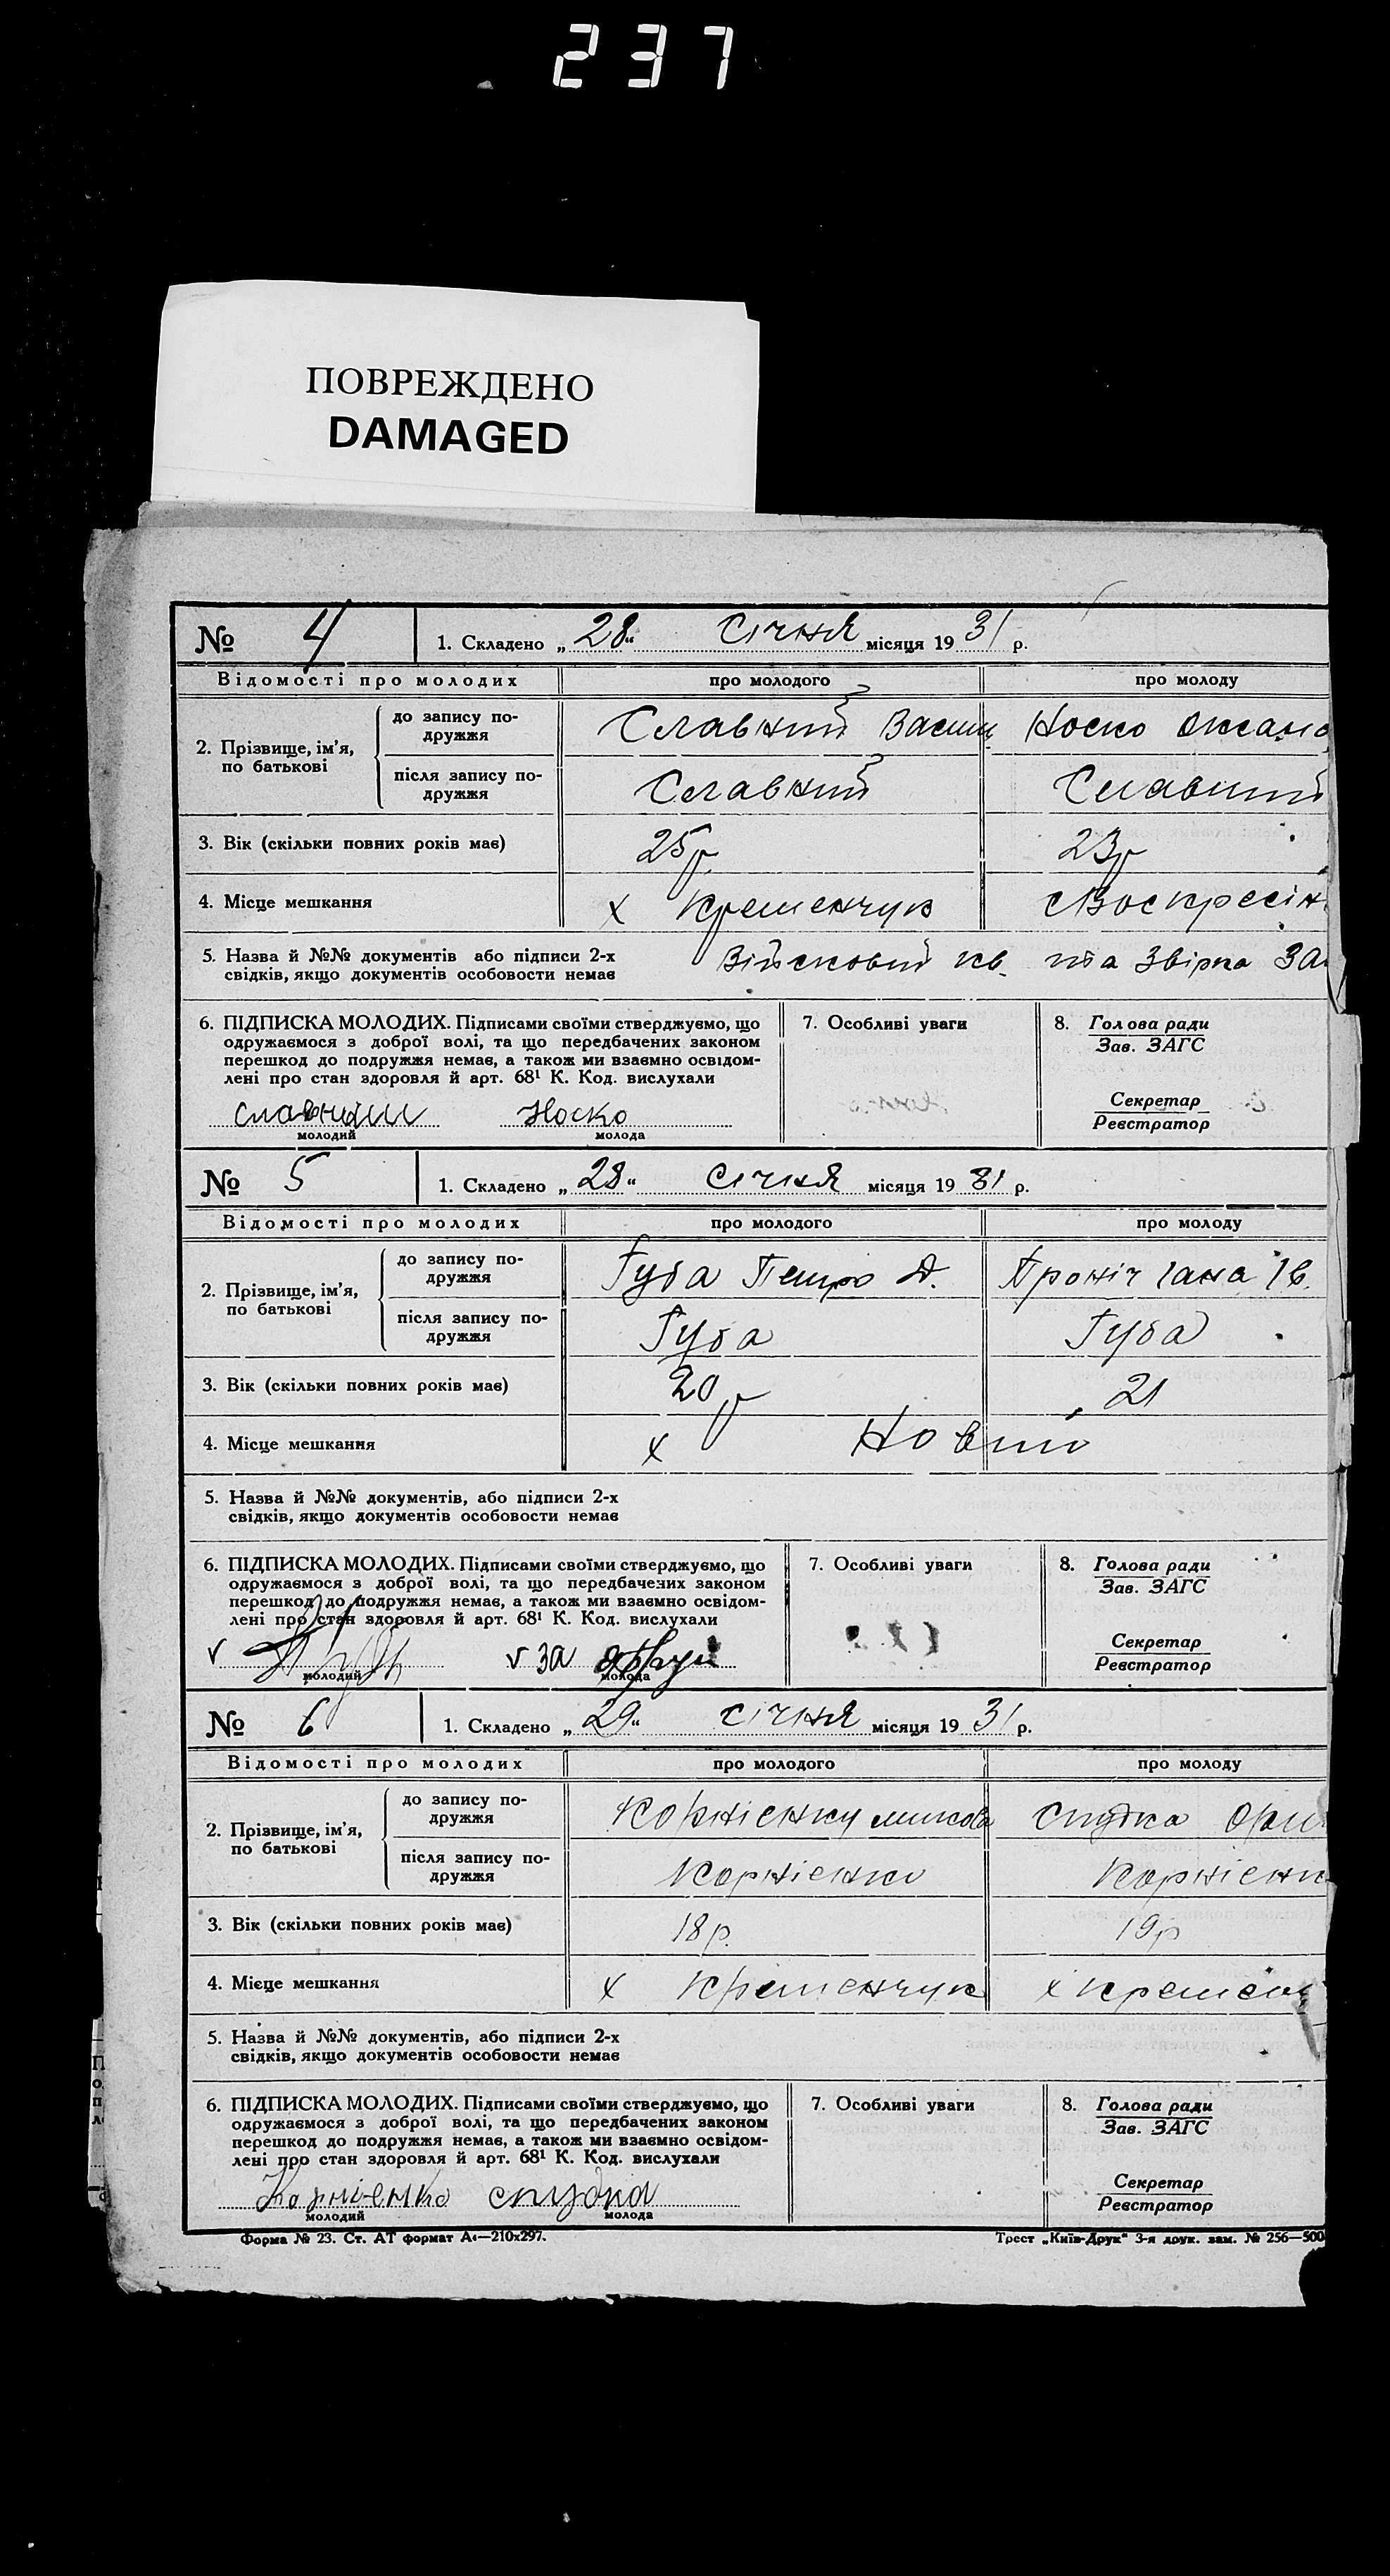 237
ПОВРЕЖДЕНО
DAMAGED
№ 4 1. Складено „28“ Січня місяця 1931 р.
Відомості про молодих про молодого про молоду
2. Прізвище, ім’я, по батькові
до запису по-
дружжя
Славний Васил Носко Оксана
після запису по-
дружжя
Славний Славний
3. Вік (скільки повних років має) 25р. 23р
4. Місце мешкання х Кременчук
5. Назва й №№ документів або підписи 2-х
свідків, якщо документів особовости немає
Військовий кв. та Звірка
6. ПІДПИСКА МОЛОДИХ. Підписами своїми стверджуємо, що
одружаємося з доброї волі, та що передбачених законом
перешкод до подружжя немає, а також ми взаємно освідом-
лені про стан здоровля й арт. 68¹ К. Код. вислухали
Носко
молодий молода
7. Особливі уваги
8. Голова ради
Зав. ЗАГС
Секретар
Реєстратор
№ 5 1. Складено „28“ Січня місяця 1931 р.
Відомості про молодих про молодого про молоду
2. Прізвище, ім’я,
по батькові
до запису по-
дружжя
Губа Петро Д. Ів.
після запису по-
дружжя
Губа Губа
3. Вік (скільки повних років має) 20р 21
4. Місце мешкання х
5. Назва й №№ документів, або підписи 2-х
свідків, якщо документів особовости немає
6. ПІДПИСКА МОЛОДИХ. Підписами своїми стверджуємо, що
одружаємося з доброї волі, та що передбачених законом
перешкод до подружжя немає, а також ми взаємно освідом-
лені про стан здоровля й арт. 68¹ К. Код. вислухали
v v за
молодий молода
7. Особливі уваги
8. Голова ради
Зав. ЗАГС
Секретар
Реєстратор
№ 6 1. Складено „29“ Січня місяця 1931 р.
Відомості про молодих про молодого про молоду
2. Прізвище, ім’я,
по батькові
до запису по-
дружжя
після запису по-
дружжя
Корнієнко Корнієн
3. Вік (скільки повних років має) 18р. 19р
4. Місце мешкання х Кременчук х Кременч
5. Назва й №№ документів, або підписи 2-х
свідків, якщо документів особовости немає
6. ПІДПИСКА МОЛОДИХ. Підписами своїми стверджуємо, що
одружаємося з доброї волі, та що передбачених законом
перешкод до подружжя немає, а також ми взаємно освідом-
лені про стан здоровля й арт. 68¹ К. Код. вислухали
Корнієнко
молодий молода
7. Особливі уваги
8. Голова ради
Зав. ЗАГС
Секретар
Реєстратор
Форма № 23. Ст. АТ формат А₄—210х297. Трест „Київ-Друк“ 3-я друк. зам. № 256—500